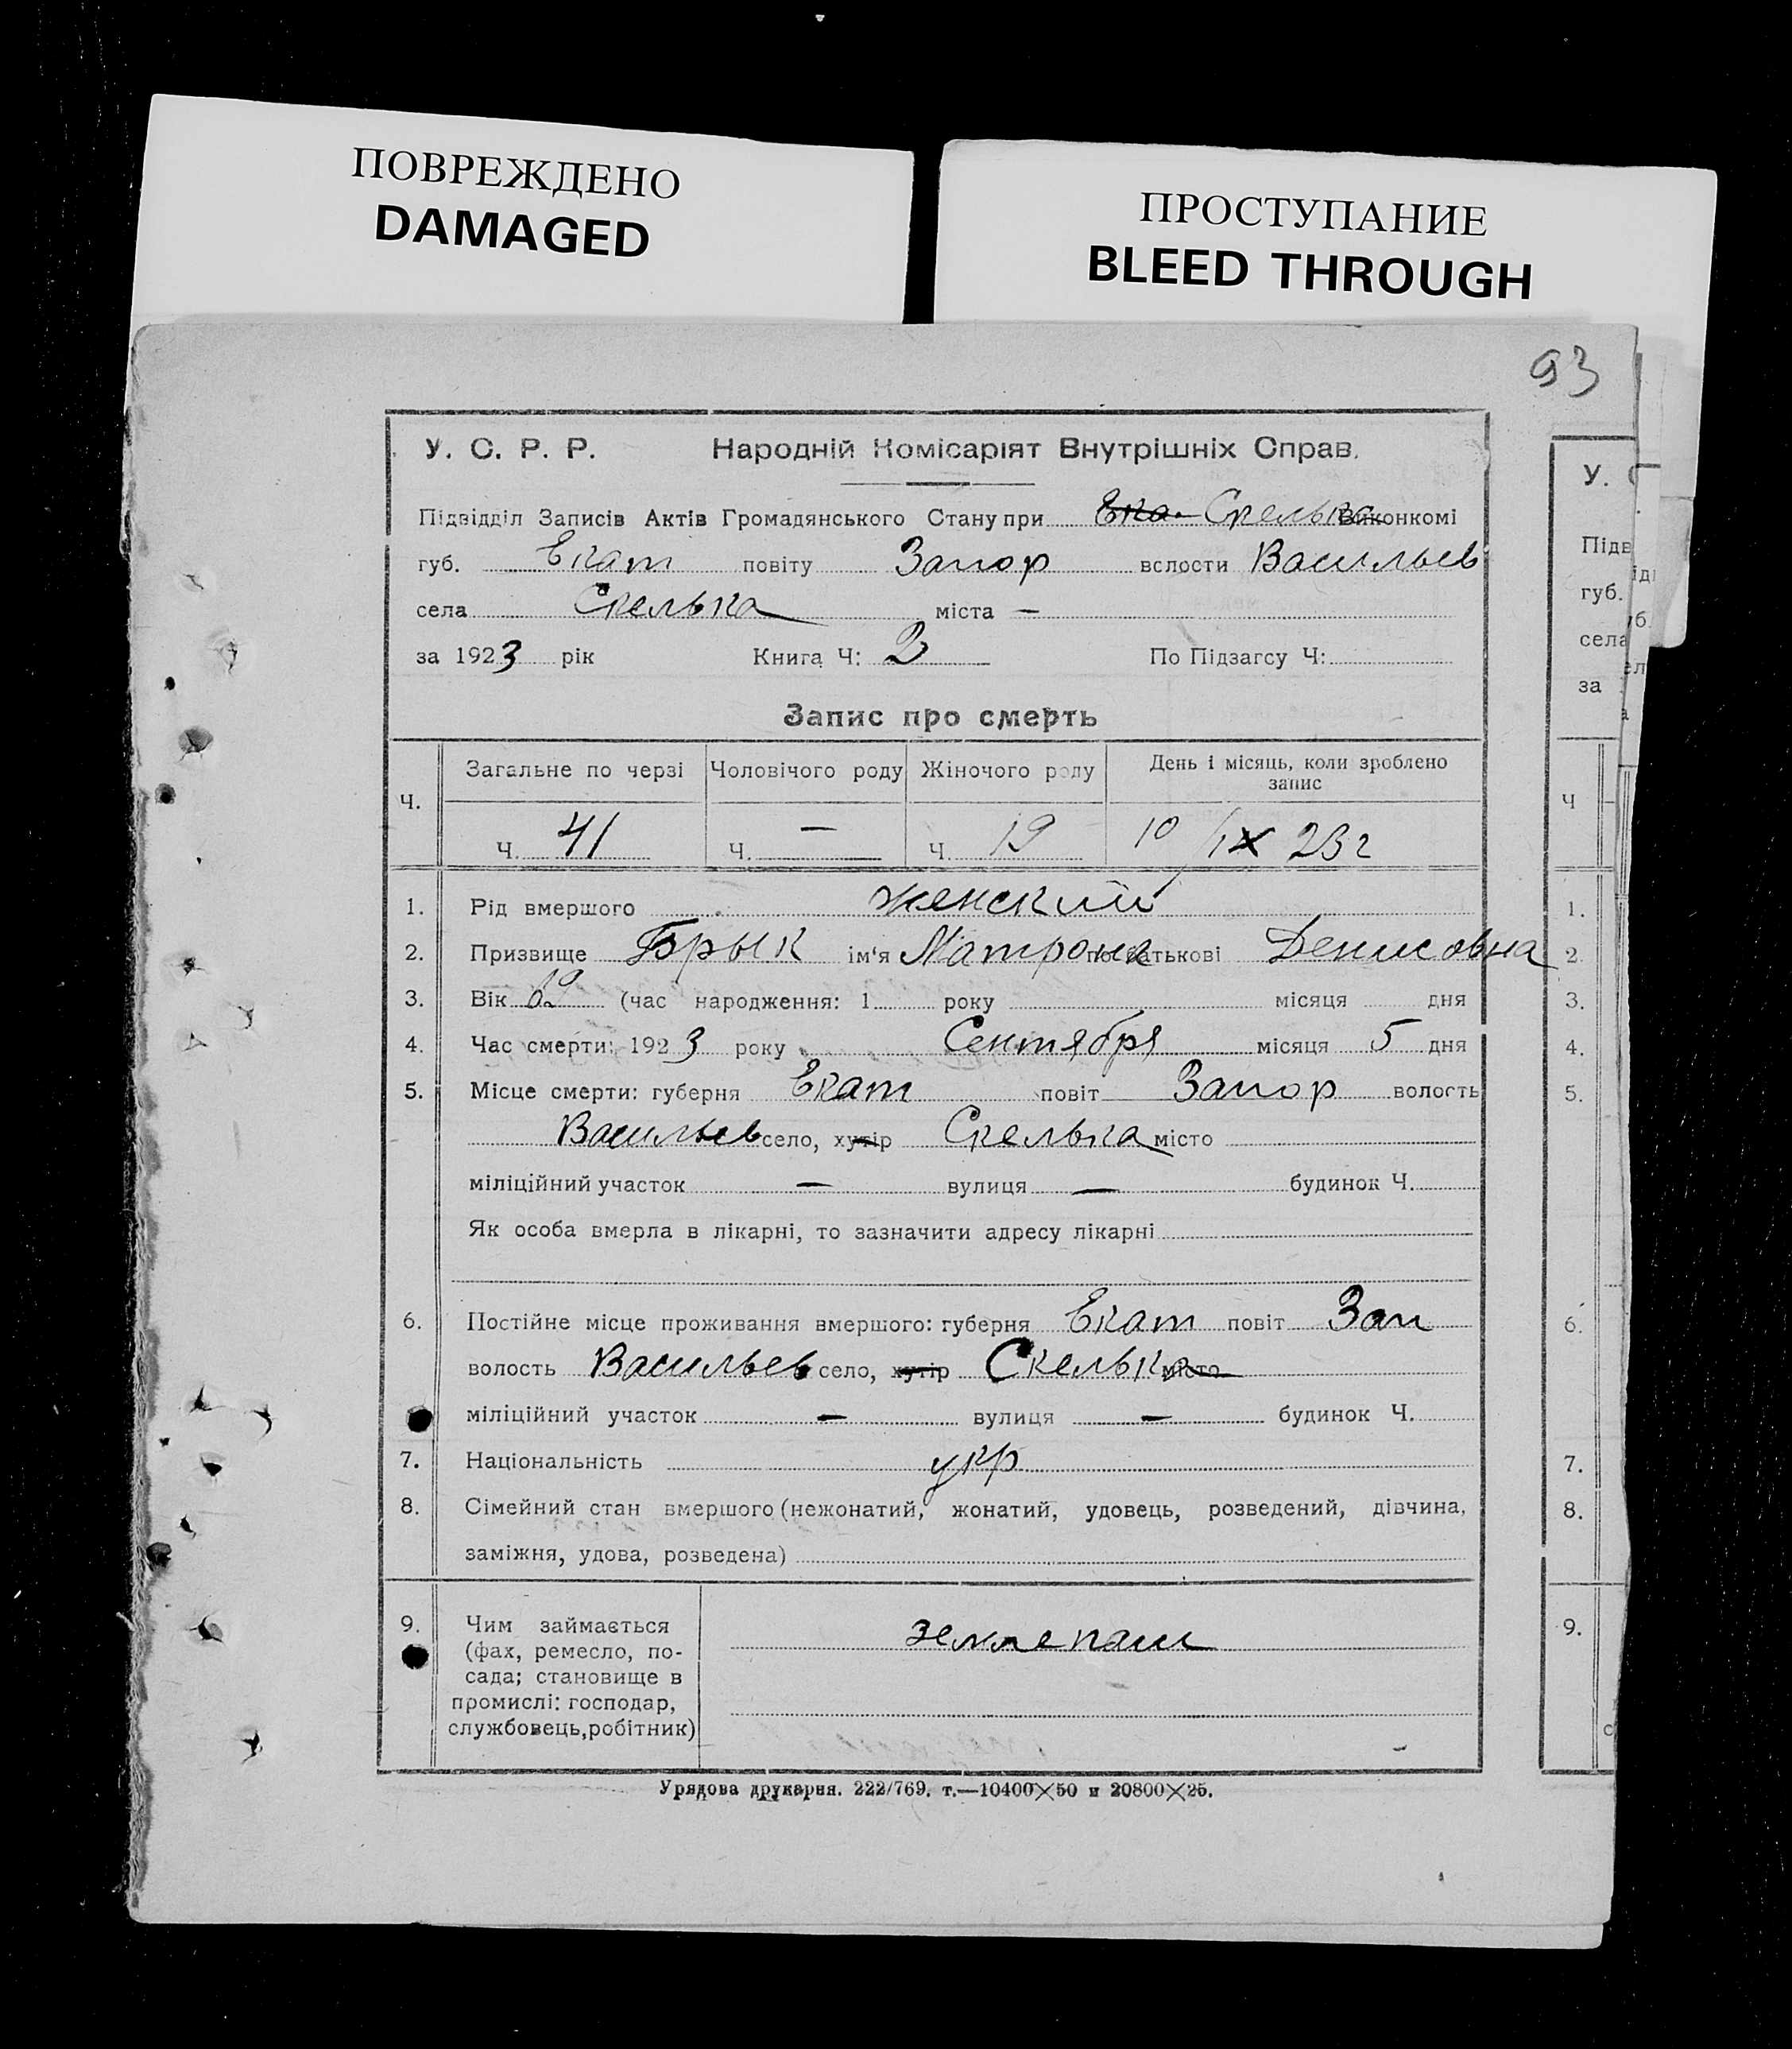 ПОВРЕЖДЕНО
DAMAGED
ПРОСТУПАНИЕ
BLEED THROUGH
93
У. С. Р. Р. Народній Комісаріят Внутрішніх Справ.
Підвідділ Записів Актів Громадянського Стану при Ека. Скелька Виконкомі
губ. Екат повіту Запор волости Васильев
села Скелька міста —
за 1923 рік Книга Ч: 3 По Підзагсу Ч:
Запис про смерть
Ч. Загальне по черзі Чоловічого роду Жіночого роду День і місяць, коли зроблено запис
Ч. 41 Ч. — Ч. 19 10/IX 23 г
1. Рід вмершого женский
2. Призвище Брык ім'я Матрона по батькові Денисовна
3. Вік (час народження: 1 року місяця дня
4. Час смерти: 1923 року Сентября місяця 5 дня
5. Місце смерти: губерня Екат повіт Запор волость
Васильев село, хутір Скелька місто
міліційний участок — вулиця — будинок Ч.
Як особа вмерла в лікарні, то зазначити адресу лікарні
6. Постійне місце проживання вмершого: губерня Екат повіт Зап
волость Васильев село, хутір Скелька місто
міліційний участок — вулиця — будинок Ч.
7. Національність укр
8. Сімейний стан вмершого (нежонатий, жонатий, удовець, розведений, дівчина,
заміжня, удова, розведена)
9. Чим займається землепаш
(фах, ремесло, по-
сада; становище в
промислі: господар,
службовець, робітник)
Урядова друкарня. 222/769. т.—10400×50 и 20800×25.
У. С
Підв
губ.
села
за
Ч
1.
2
3.
4.
5.
6.
7.
8.
9.